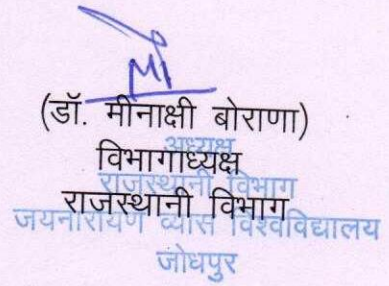 (डॉ. मीनाक्षी बोराणा)
अध्यक्ष
विभागाध्यक्ष
राजस्थानी विभाग
राजस्थानी विभाग
जयनारायण व्यास विश्वविद्यालय
जोधपुर